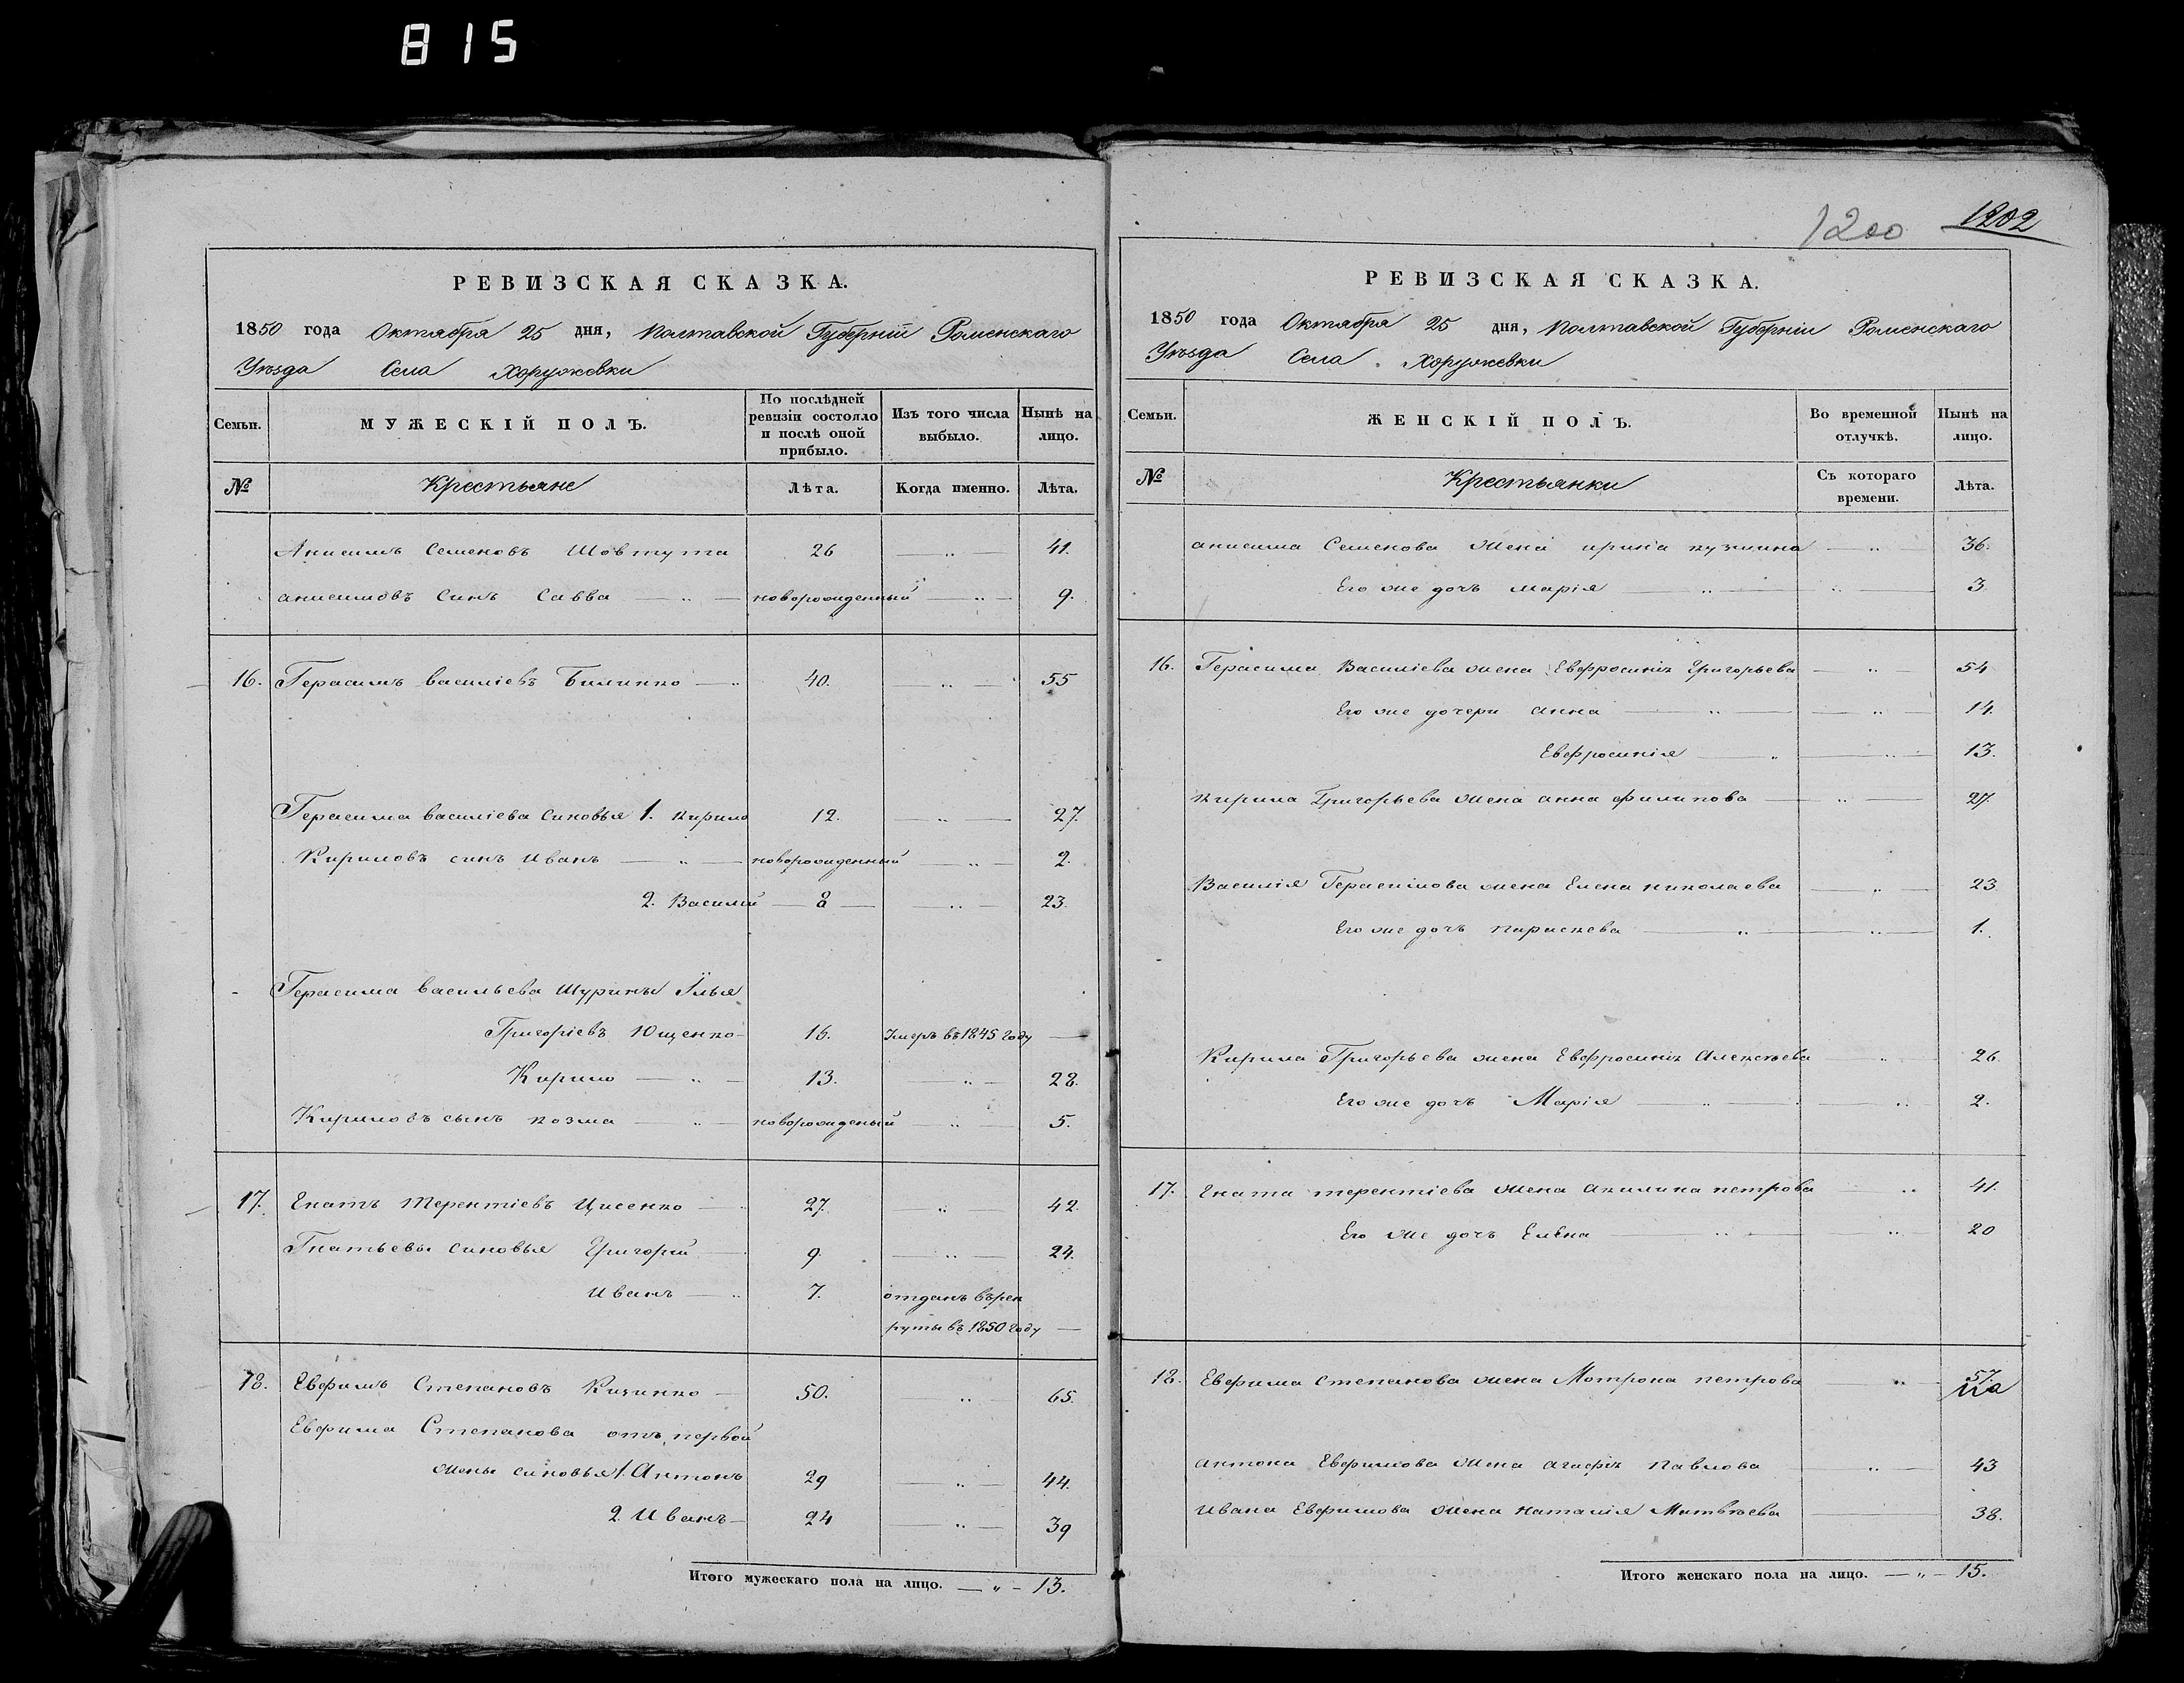 815
РЕВИЗСКАЯ СКАЗКА.
1850 года Октября 25 дня, Полтавской Губерніи Роменскаго
Уѣзда Села Хоружевки
Семьи.
МУЖЕСКІЙ ПОЛЪ.
По послѣдней ревизіи состояло и послѣ оной прибыло.
Изъ того числа выбыло.
Нынѣ на лицо.
№ Крестьяне Лѣта. Когда именно. Лѣта.
Анисимъ Семеновъ Шовтута 26 — „ — 41.
анисимовъ Синъ Савва — „ — новорожденный — „ — 9.
16. Герасимъ василіевъ Билинко — „ 40. — „ — 55
Герасима василіева синовья 1. кирило 12. — „ — 27.
Кириловъ синъ иванъ — „ — новорожденный — „ — 2.
2. Василій — 8 — — „ — 23.
Герасима васильева Шуринъи Илья
Григоріевъ Ющенко — 16. Умеръ въ 1845 году —
Кирило — „ — 13. — „ — 28.
Кириловъ сынъ козма — „ — новорожденый — „ — 5.
17. Гнатъ терентіевъ Цисенко — „ 27. — „ — 42.
Гнатьевы синовья Григорій — 9. — „ — 24.
иванъ — „ 7. отданъ върек
руты въ 1850 году —
18. Евфимъ Степановъ Кизинко — 50. — „ — 65.
Евфима Степанова отъ первой
жены синовья 1. Антонъ 29 — „ — 44.
2. Иванъ — 24 — „ — 39
Итого мужескаго пола на лицо. — „ — 13.
1200 1202
РЕВИЗСКАЯ СКАЗКА.
1850 года Октября 25 дня, Полтавской Губерніи Роменскаго
Уѣзда Села Хоружевки
Семьи.
ЖЕНСКІЙ ПОЛЪ.
Во временной отлучкѣ.
Нынѣ на лицо.
№ Крестьянки Съ котораго времени. Лѣта.
анисима Семенова жена ирина кузмина — „ — 36.
Его же дочъ марія — „ — „ — 3.
16. Герасима Василіева жена Евфросинія Григорьева — „ — 54
Его же дочери анна — „ — „ — 14.
Евфросинія — „ — „ — 13.
кирила Григорьева жена анна филипова — „ — 27.
Василія Герасимова жена Елена николаева — „ — 23.
Его же дочъ параскева — „ — „ — 1.
Кирила Григорьева жена Евфросинія Алексѣева — „ — 26.
Его же дочъ Марія — „ — „ — 2.
17. Гната терентіева жена акилина петрова — „ 41.
Его же дочъ Елена — „ — „ — 20
18. Евфима степанова жена Мотрона петрова — „ — 57.
антона Евфимова жена агафія павлова — „ — 43
ивана Евфимова жена наталія Матвѣева — 38.
Итого женскаго пола на лицо. — „ — 15.